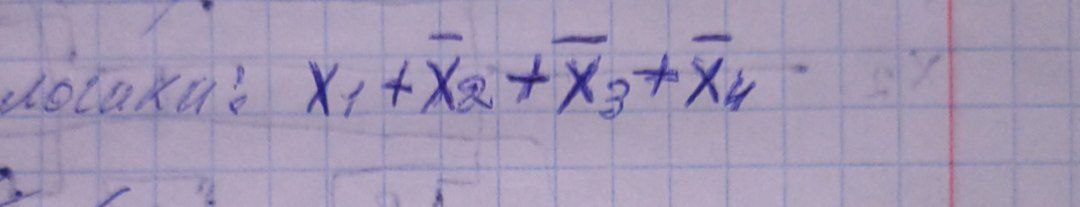 логики: x₁ + x̅₂ + x̅₃ + x̅₄